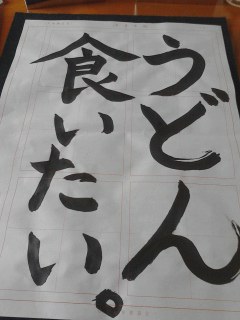 うどん
食いたい。